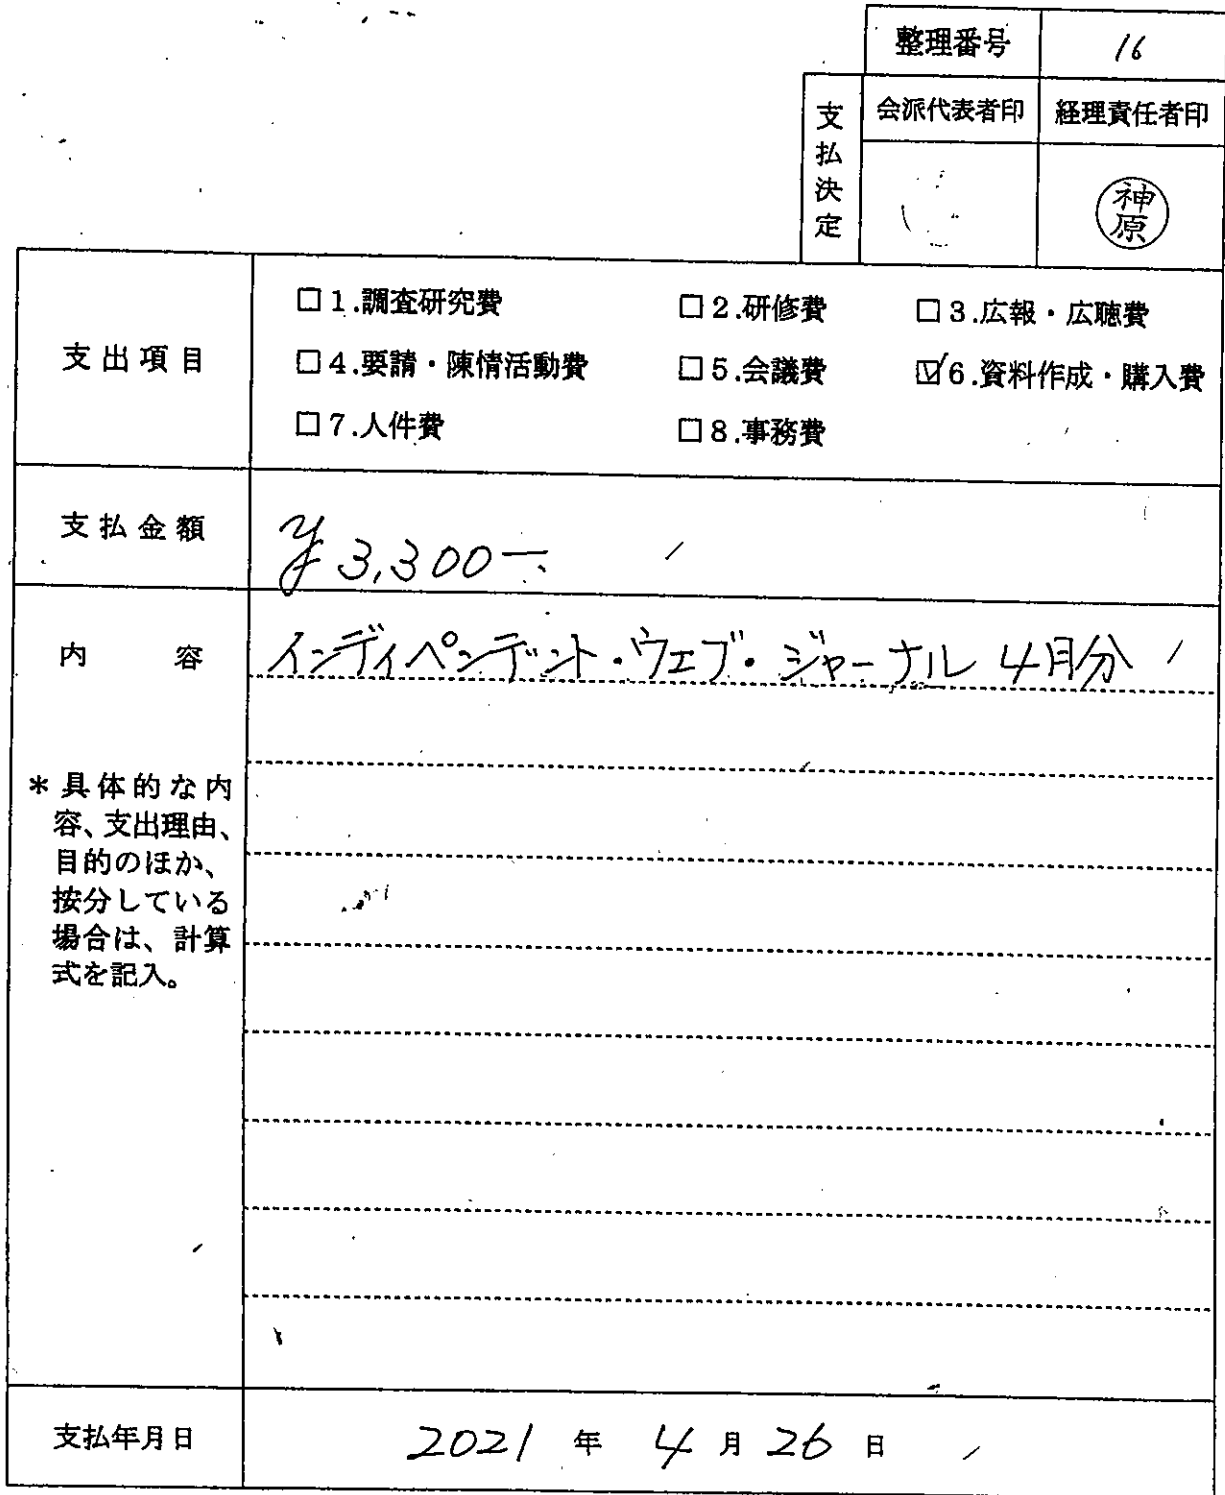 整理番号 16
支払決定 会派代表者印 経理責任者印
神原
支出項目
□1.調査研究費 □2.研修費 □3.広報・広聴費
□4.要請・陳情活動費 □5.会議費 ☑6.資料作成・購入費
□7.人件費 □8.事務費
支払金額 ¥3,300-
内容 インディペンデント・ウェブ・ジャーナル 4月分
*具体的な内
容、支出理由、
目的のほか、
按分している
場合は、計算
式を記入。
支払年月日 2021年4月26日